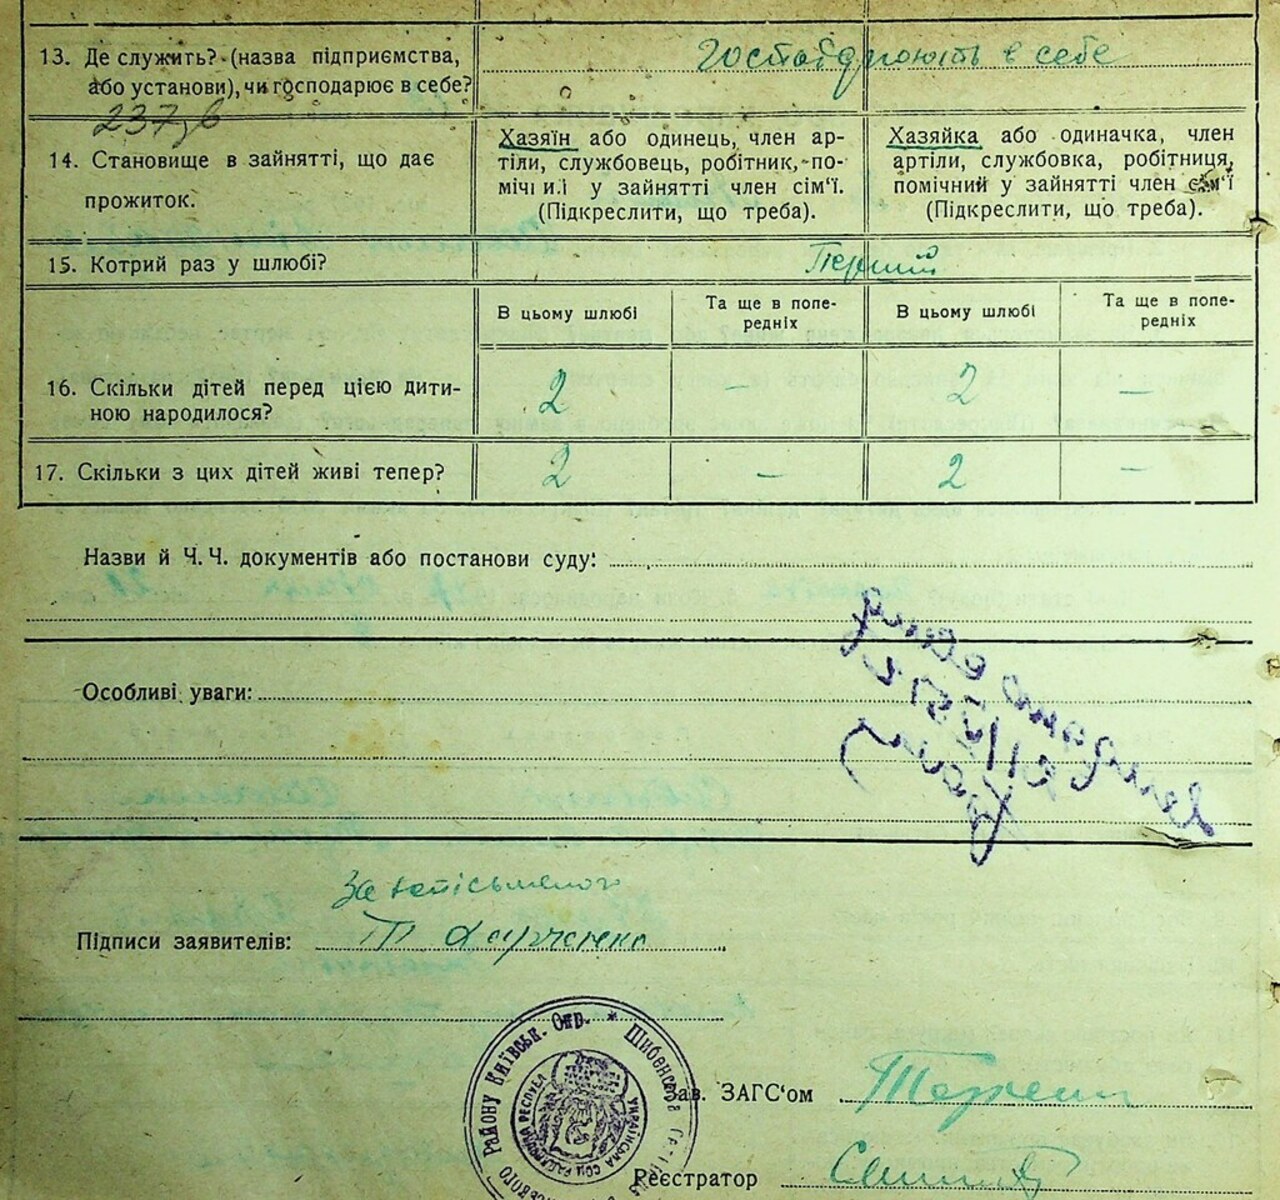 13. Де служить? (назва підприємства,
або установи), чи господарює в себе?
в себе
237,б
14. Становище в зайнятті, що дає
прожиток.
Хазяїн або одинець, член ар-
тіли, службовець, робітник, по-
мічни.і у зайнятті член сім'ї.
(Підкреслити, що треба).
Хазяйка або одиначка, член
артіли, службовка, робітниця,
помічний у зайнятті член сім'ї
(Підкреслити, що треба).
15. Котрий раз у шлюбі?
Перший
В цьому шлюбі
Та ще в попе-
редніх
В цьому шлюбі
Та ще в попе-
редніх
16. Скільки дітей перед цією дити-
ною народилося?
2 — 2 —
17. Скільки з цих дітей живі тепер?
2 — 2 —
Назви й Ч. Ч. документів або постанови суду:
Особливі уваги:
За
Підписи заявителів:
Району Київськ. Окр. * Шибенська
УКРАЇНСЬКА СОЦ. РАДЯНСЬКА РЕСПУБЛ
Зав. ЗАГС'ом
Реєстратор